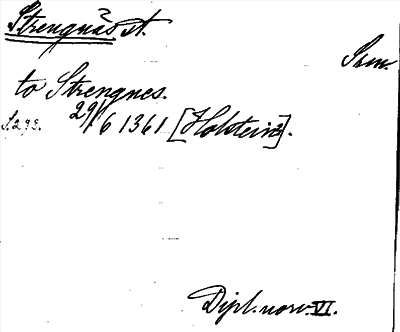 Strengnäs st.
Srm.
to Strengnes.
S. 293. 29/6 1361 [Holstein].
Dipl. norv. VI.